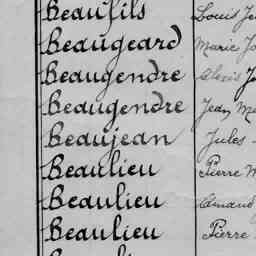 Beaufils Louis
Beaugeard Marie
Beaugendre Alexis
Beaugendre Jean
Beaujean Jules
Beaulieu Pierre
Beaulieu Amand
Beaulieu Pierre